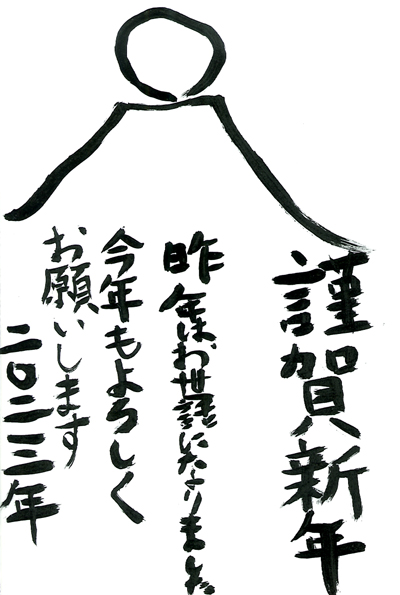 謹賀新年
昨年はお世話になりました
今年もよろしく
お願いします
二〇二三年